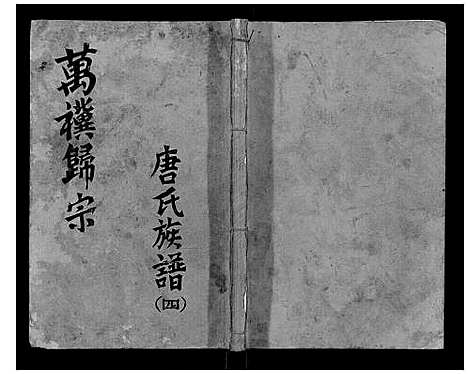 萬禩歸宗
唐氏族譜
(四)